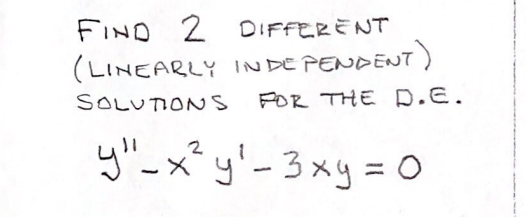 FIND 2 DIFFERENT
(LINEARLY INDEPENDENT)
SOLUTIONS FOR THE D.E.
y'' - x² y' - 3xy = 0